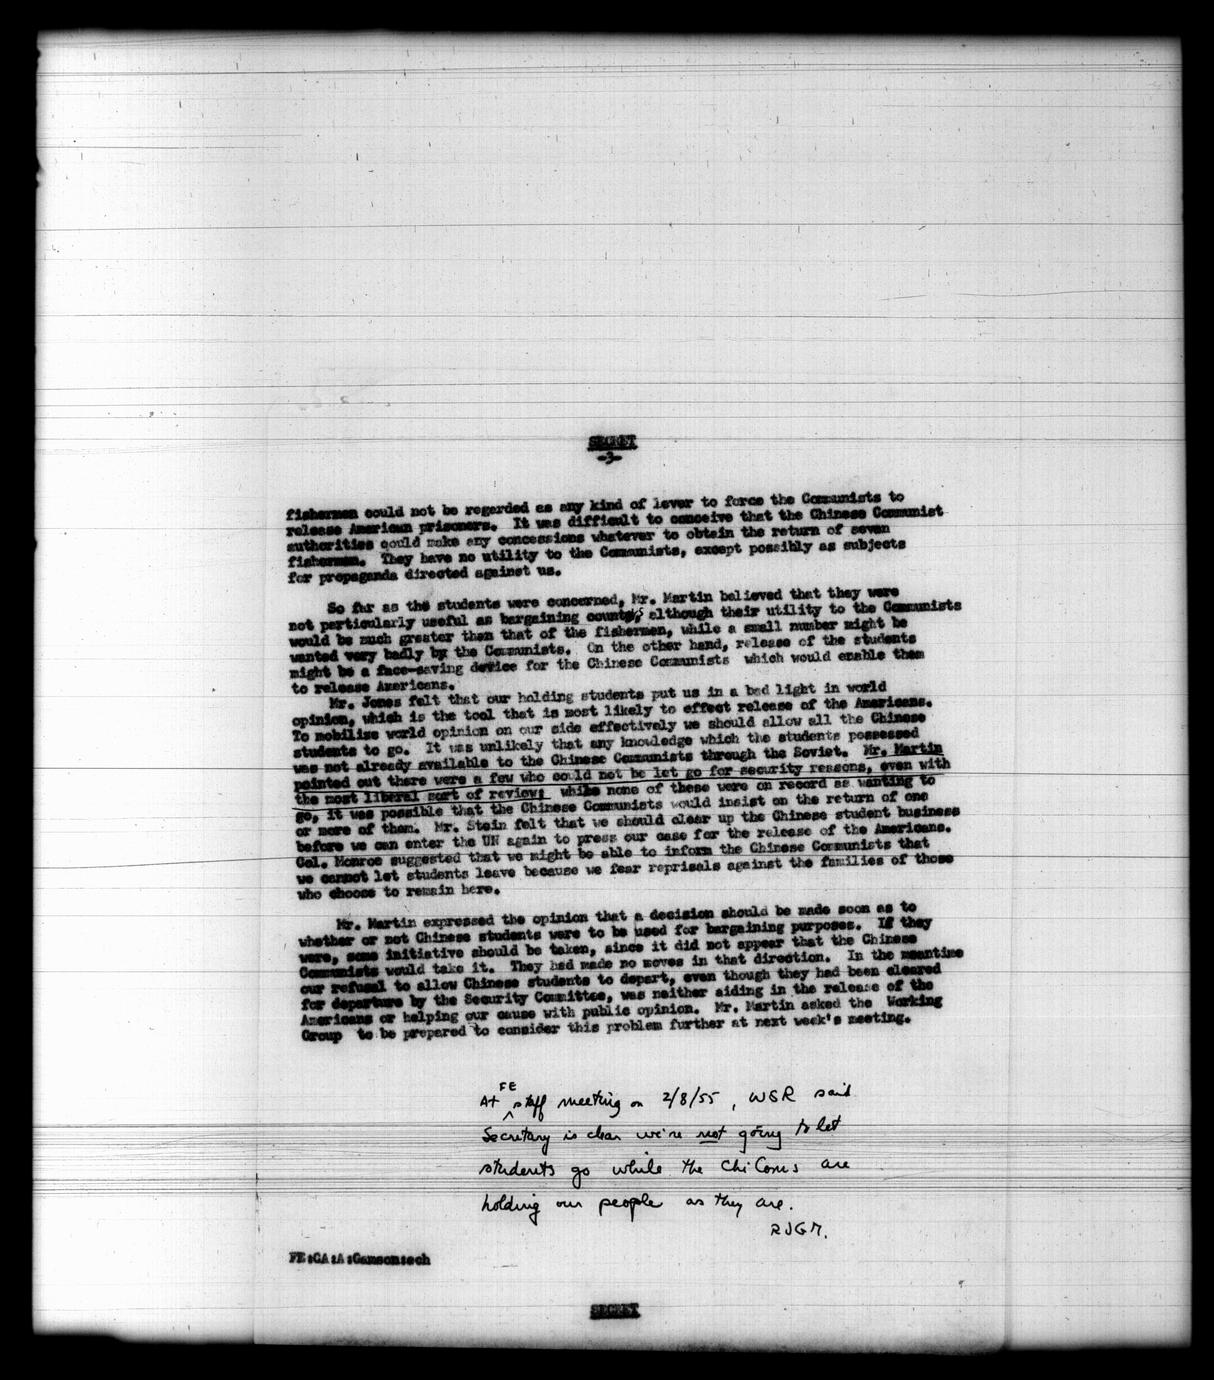 SECRET
-3-
fishermen could not be regarded as any kind of lever to force the Communists to
release American prisoners. It was difficult to conceive that the Chinese Communist
authorities could make any concessions whatever to obtain the return of seven
fishermen. They have no utility to the Communists, except possibly as subjects
for propaganda directed against us.
So far as the students were concerned, Mr. Martin believed that they were
not particularly useful as bargaining counters, although their utility to the Communists
would be much greater than that of the fishermen, while a small number might be
wanted very badly by the Communists. On the other hand, release of the students
might be a face-saving device for the Chinese Communists which would enable them
to release Americans.
Mr. Jones felt that our holding students put us in a bad light in world
opinion, which is the tool that is most likely to effect release of the Americans.
To mobilize world opinion on our side effectively we should allow all the Chinese
students to go. It was unlikely that any knowledge which the students possessed
was not already available to the Chinese Communists through the Soviet. Mr. Martin
pointed out there were a few who could not be let go for security reasons, even with
the most liberal sort of review; while none of these were on record as wanting to
go, it was possible that the Chinese Communists would insist on the return of one
or more of them. Mr. Stein felt that we should clear up the Chinese student business
before we can enter the UN again to press our case for the release of the Americans.
Col. Monroe suggested that we might be able to inform the Chinese Communists that
we cannot let students leave because we fear reprisals against the families of those
who choose to remain here.
Mr. Martin expressed the opinion that a decision should be made soon as to
whether or not Chinese students were to be used for bargaining purposes. If they
were, some initiative should be taken, since it did not appear that the Chinese
Communists would take it. They had made no moves in that direction. In the meantime
our refusal to allow Chinese students to depart, even though they had been cleared
for departure by the Security Committee, was neither aiding in the release of the
Americans or helping our cause with public opinion. Mr. Martin asked the Working
Group to be prepared to consider this problem further at next week's meeting.
At FE staff meeting on 2/8/55, WSR said
Secretary is clear we're not going to let
students go while the ChiComs are
holding our people as they are.
RJGM.
FE:CA:A:Gamson:ech
SECRET